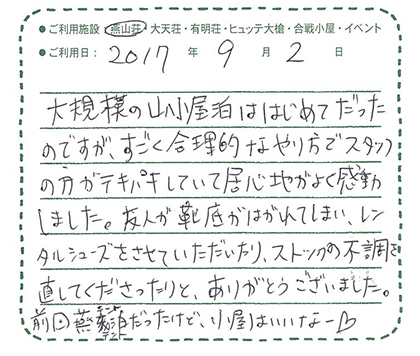 ●ご利用施設 燕山荘・大天荘・有明荘・ヒュッテ大槍・合戦小屋・イベント
●ご利用日: 2017 年 9 月 2 日
大規模の山小屋泊ははじめてだった
のですが、すごく合理的なやり方でスタッフ
の方がテキパキしていて居心地がよく感動
しました。友人が靴底がはがれてしまい、レン
タルシューズをさせていただいたり、ストックの不調を
直してくださったりと、ありがとうございました。
前回燕テント泊だったけど、小屋はいいなー♡